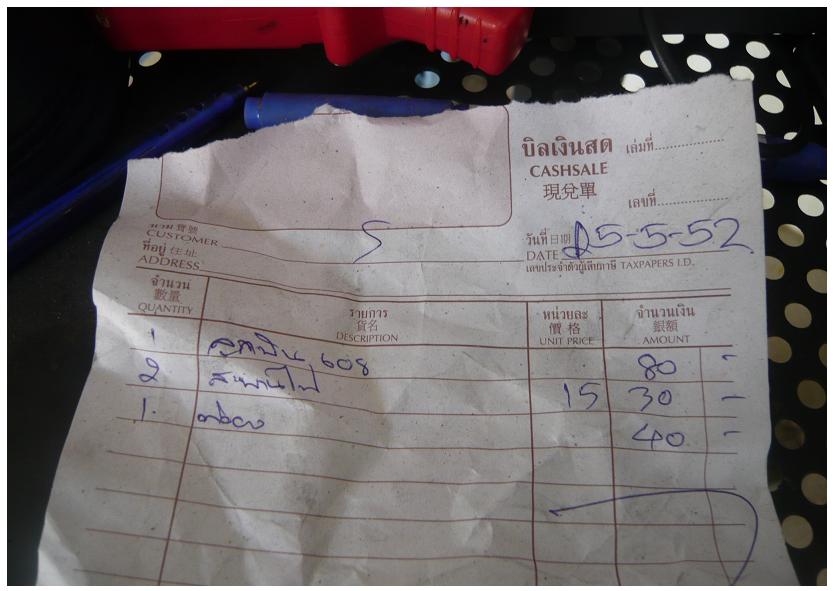 บิลเงินสด เล่มที่
CASHSALE
現兌單 เลขที่
นาม 寶號
CUSTOMER
วันที่ 日期 25-5-52
DATE
ที่อยู่ 住址
ADDRESS
เลขประจำตัวผู้เสียภาษี TAXPAPERS I.D.
จำนวน รายการ หน่วยละ จำนวนเงิน
數量 貨名 價格 銀額
QUANTITY DESCRIPTION UNIT PRICE AMOUNT
1 ลูกปืน 608 80 -
2 สะพานไฟ 15 30 -
1 40 -